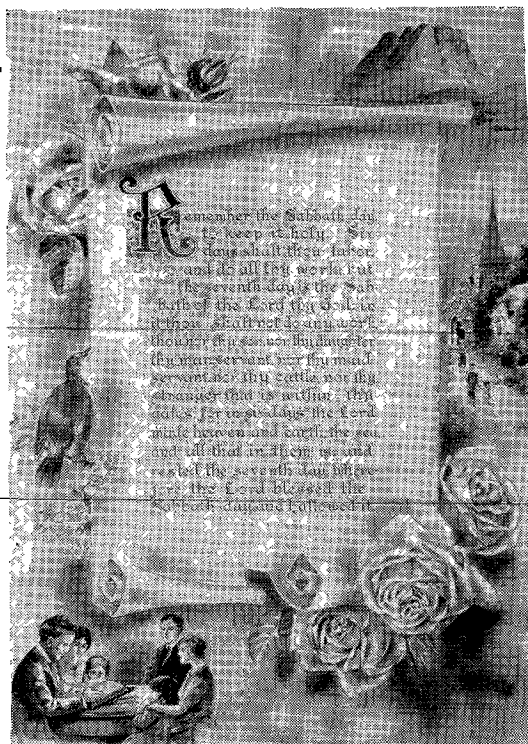 Remember the Sabbath day,
to keep it holy. Six
days shalt thou labor,
and do all thy work: but
the seventh day is the Sab
bath of the Lord thy God: in
it thou shalt not do any work,
thou, nor thy son, nor thy daughter,
thy manservant, nor thy maid
servant, nor thy cattle, nor thy
stranger that is within thy
gates: for in six days the Lord
made heaven and earth, the sea,
and all that in them is, and
rested the seventh day: where
fore the Lord blessed the
Sabbath day, and hallowed it.